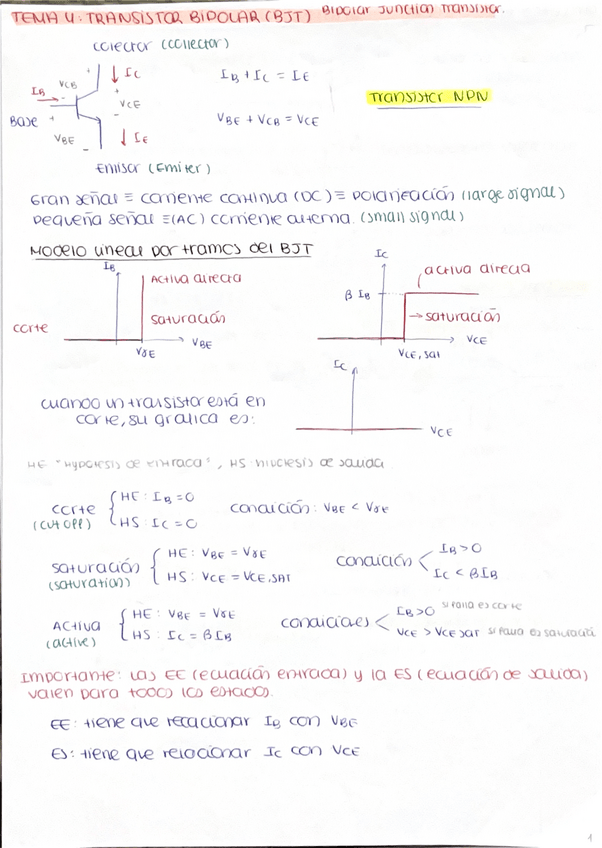 TEMA 4: TRANSISTOR BIPOLAR (BJT) Bipolar Junction Transistor.
colector (collector)
IB VCB + IC
IB + IC = IE
Transistor NPN
Base + VCE
VBE + VCB = VCE
VBE IE
Emisor (Emiter)
Gran señal ≡ corriente continua (DC) ≡ Polarización (large signal)
Pequeña señal ≡ (AC) corriente alterna. (small signal)
Modelo lineal por tramos del BJT
IB
Activa directa
saturación
corte
VγE
VBE
IC
activa directa
β IB
→ saturación
VCE
VCE, sat
cuando un transistor está en
corte, su gráfica es:
IC
VCE
HE "Hypotesis de entrada", HS: hipótesis de salida
corte { HE: IB = 0
(cut off) HS: IC = 0
condición: VBE < VγE
saturación { HE: VBE = VγE
(saturation) HS: VCE = VCE, SAT
condición < IB > 0
IC < βIB
Activa { HE: VBE = VγE
(active) HS: IC = βIB
condiciones < IB > 0 si falla es corte
VCE > VCE sat si falla es saturació
Importante: Las EE (ecuación entrada) y la ES (ecuación de salida)
valen para todos los estados.
EE: tiene que relacionar IB con VBE
ES: tiene que relacionar IC con VCE
1